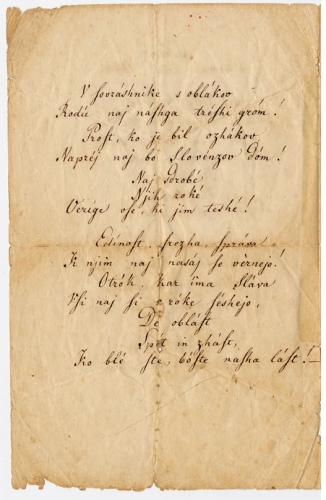 V sovráshnike s oblákov
Rodú naj náshga tréshi gróm!
Prost, ko je bil ozhákov,
Napréj naj bo Slovénzov dóm!
Naj sdrobé
Njih roké
Veríge vse, ki jim teshé!
Edínost, srezha, správa
K njim naj nasáj se vèrnejo!
Otrók, kar íma Sláva
Vsi naj si v róke séshejo,
De oblást
Spet in zhást,
Ko blé ste, bóste nasha lást!